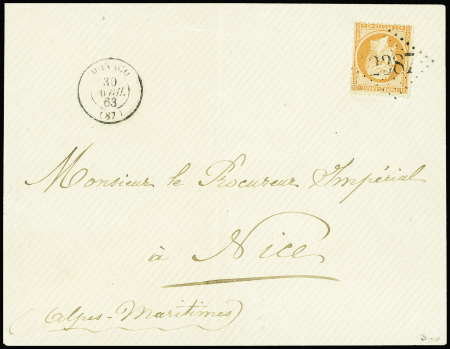 MONACO
30
AVRIL
63
(87)
2387
Monsieur le Procureur Impérial
à Nice
(Alpes-Maritimes)